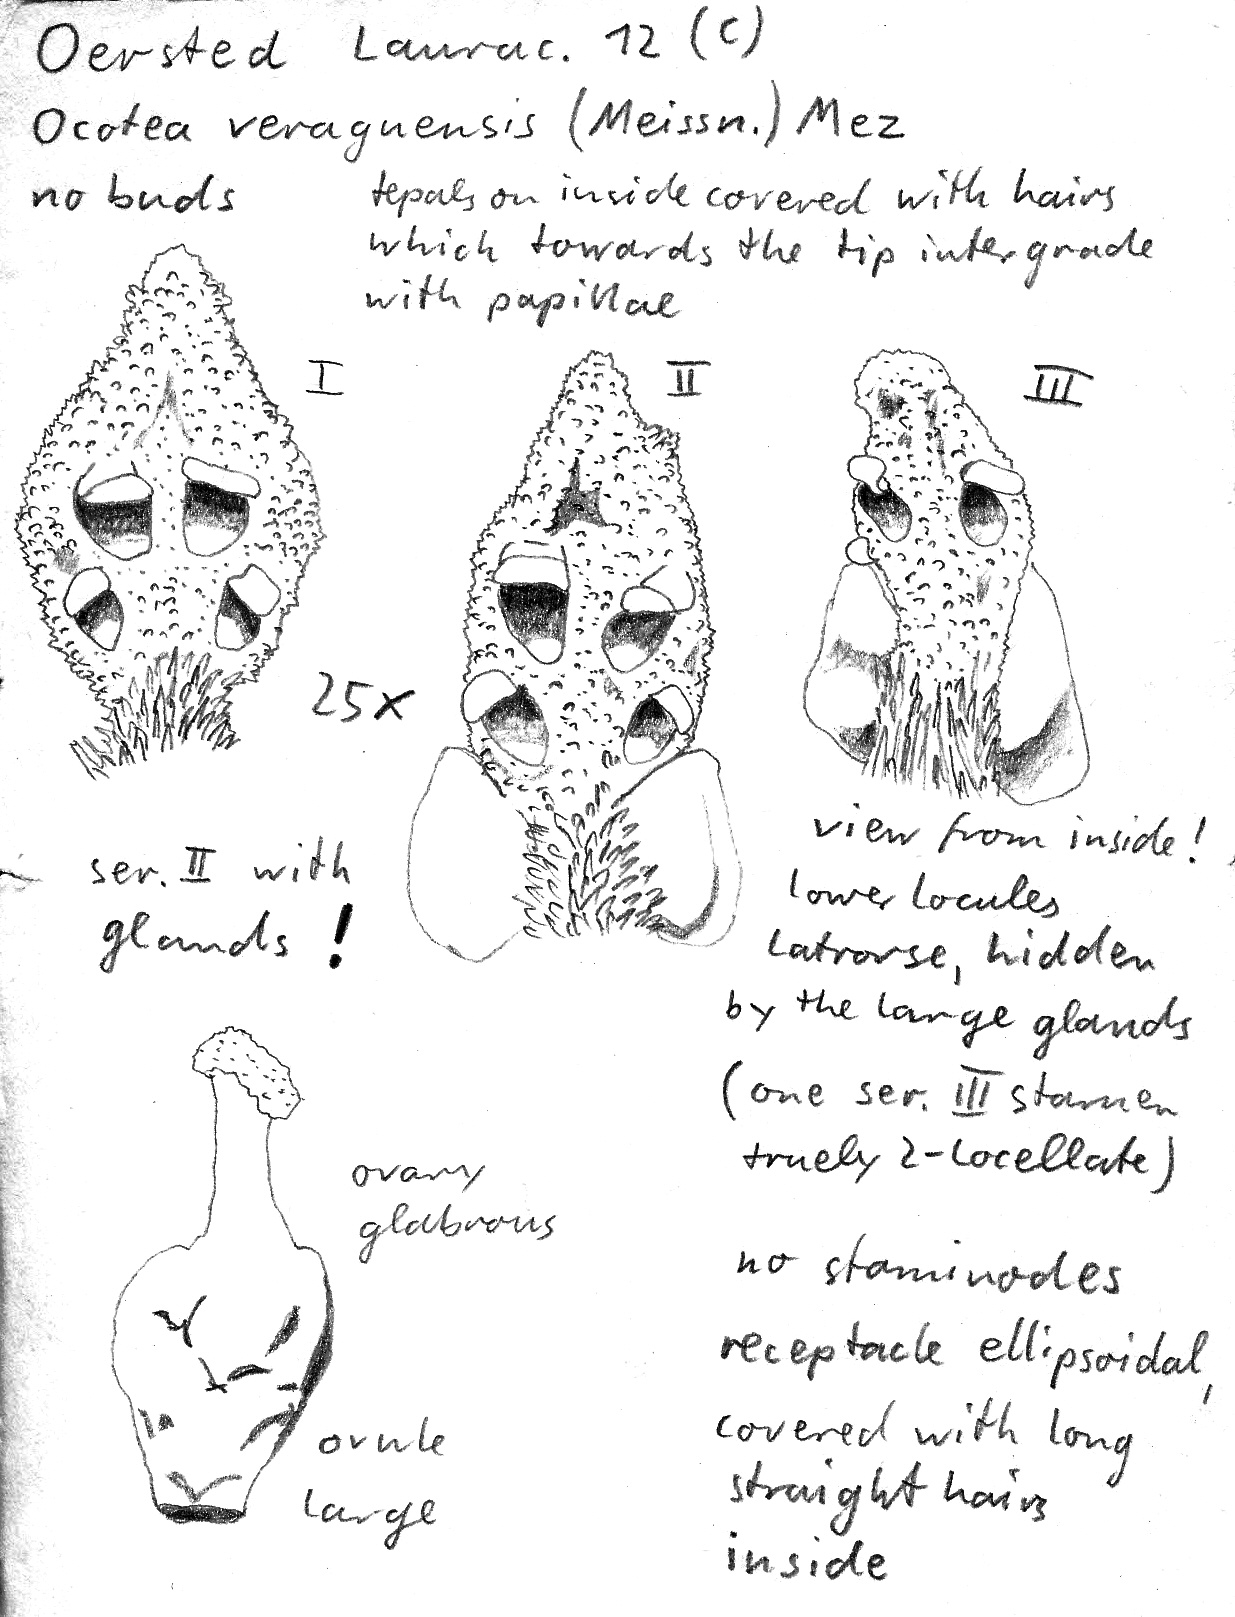 Oersted Laurac. 12 (C)
Ocotea veraguensis (Meissn.) Mez
no buds
tepals on inside covered with hairs
which towards the tip intergrade
with papillae
I
II
III
25x
ser. II with
glands !
view from inside!
lower locules
latrorse, hidden
by the large glands
(one ser. III stamen
truely 2-locellate)
ovary
glabrous
no staminodes
receptacle ellipsoidal,
covered with long
straight hairs
inside
ovule
large